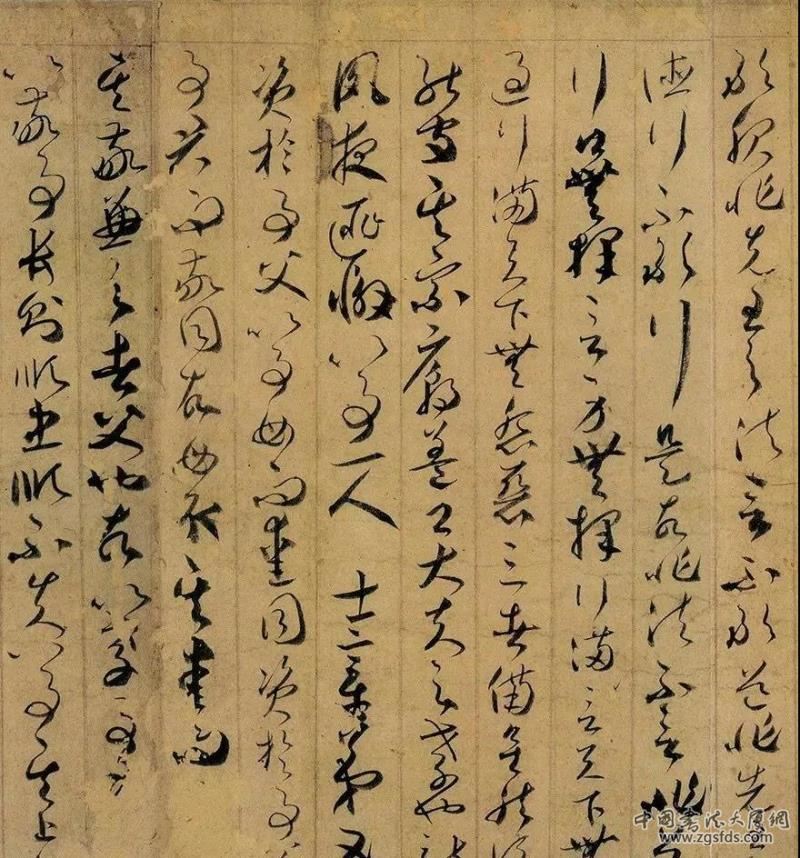 敢服非先王之法言不敢道非先王
德行不敢行是故非法不言非道
行口無擇言身無擇行滿言天下無
過行滿天下無怨惡三者備矣然後
能守其宗廟蓋卿大夫之孝也詩
夙夜匪懈以事一人 士章第五
資於事父以事母而愛同資於事
事君而敬同故母取其愛而
其敬兼之者父也故以孝事君
以敬事長則順忠順不失以事其上
中国书法大展网
www.zgsfds.com